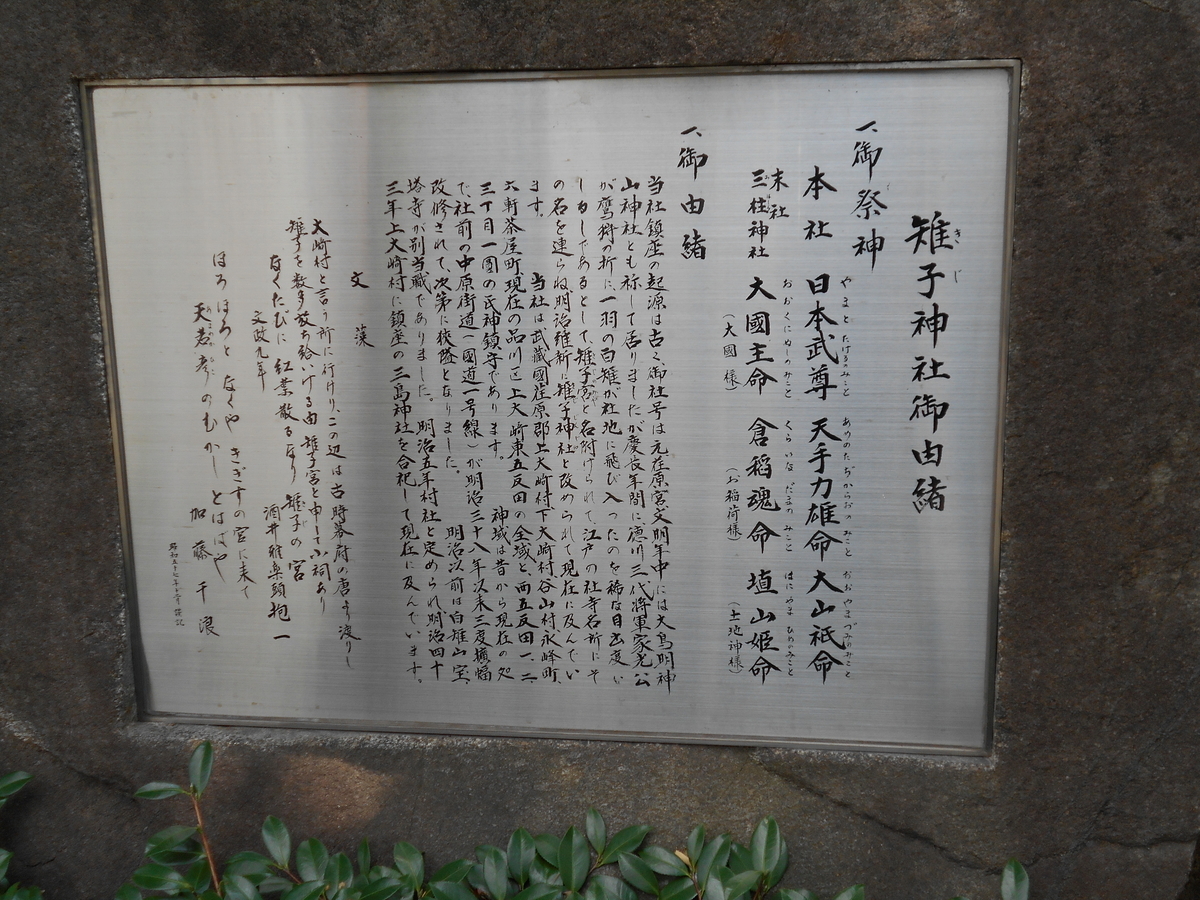 雉子神社御由緒
一、御祭神
本社 日本武尊 天手力雄命 大山祇命
末社
三柱神社 大國主命 倉稲魂命 埴山姫命
(大國様) (お稲荷様) (土地神様)
一、御由緒
当社鎮座の起源は古く、御社号は元荏原宮、文明年中には大鳥明神
山神社とも称して居りましたが慶長年間に徳川三代将軍家光公
が鷹狩の折に、一羽の白雉が社地に飛び入ったのを稀な目出度い
しるしであるとして、雉子宮と名附けられて、江戸の社寺名所にそ
の名を連らね、明治維新に雉子神社と改められて現在に及んでい
ます。 当社は武蔵國荏原郡上大崎村下大崎村谷山村永峰町、
六軒茶屋町、現在の品川区上大崎東五反田の全域と、西五反田一、二、
三丁目一圓の氏神鎮守であります。 神域は昔から現在の処
で、社前の中原街道(國道一号線)が明治三十八年以来三度擴幅
改修されて、次第に狭隘となりました。 明治以前は白雉山宝
塔寺が別当職でありました。明治五年村社と定められ、明治四十
三年上大崎村に鎮座の三島神社を合祀して現在に及んでいます。
文藻
大崎村と言う所に行けり、この辺は古時
雉子を数多放ち給いける由 雉子宮と申て小祠あり
なくたびに 紅葉散るなり 雉子の宮
文政九年 酒井雅楽頭抱一
ほろほろと なくや きぎすの宮に来て
天若彦のむかし とはばや
加藤千浪